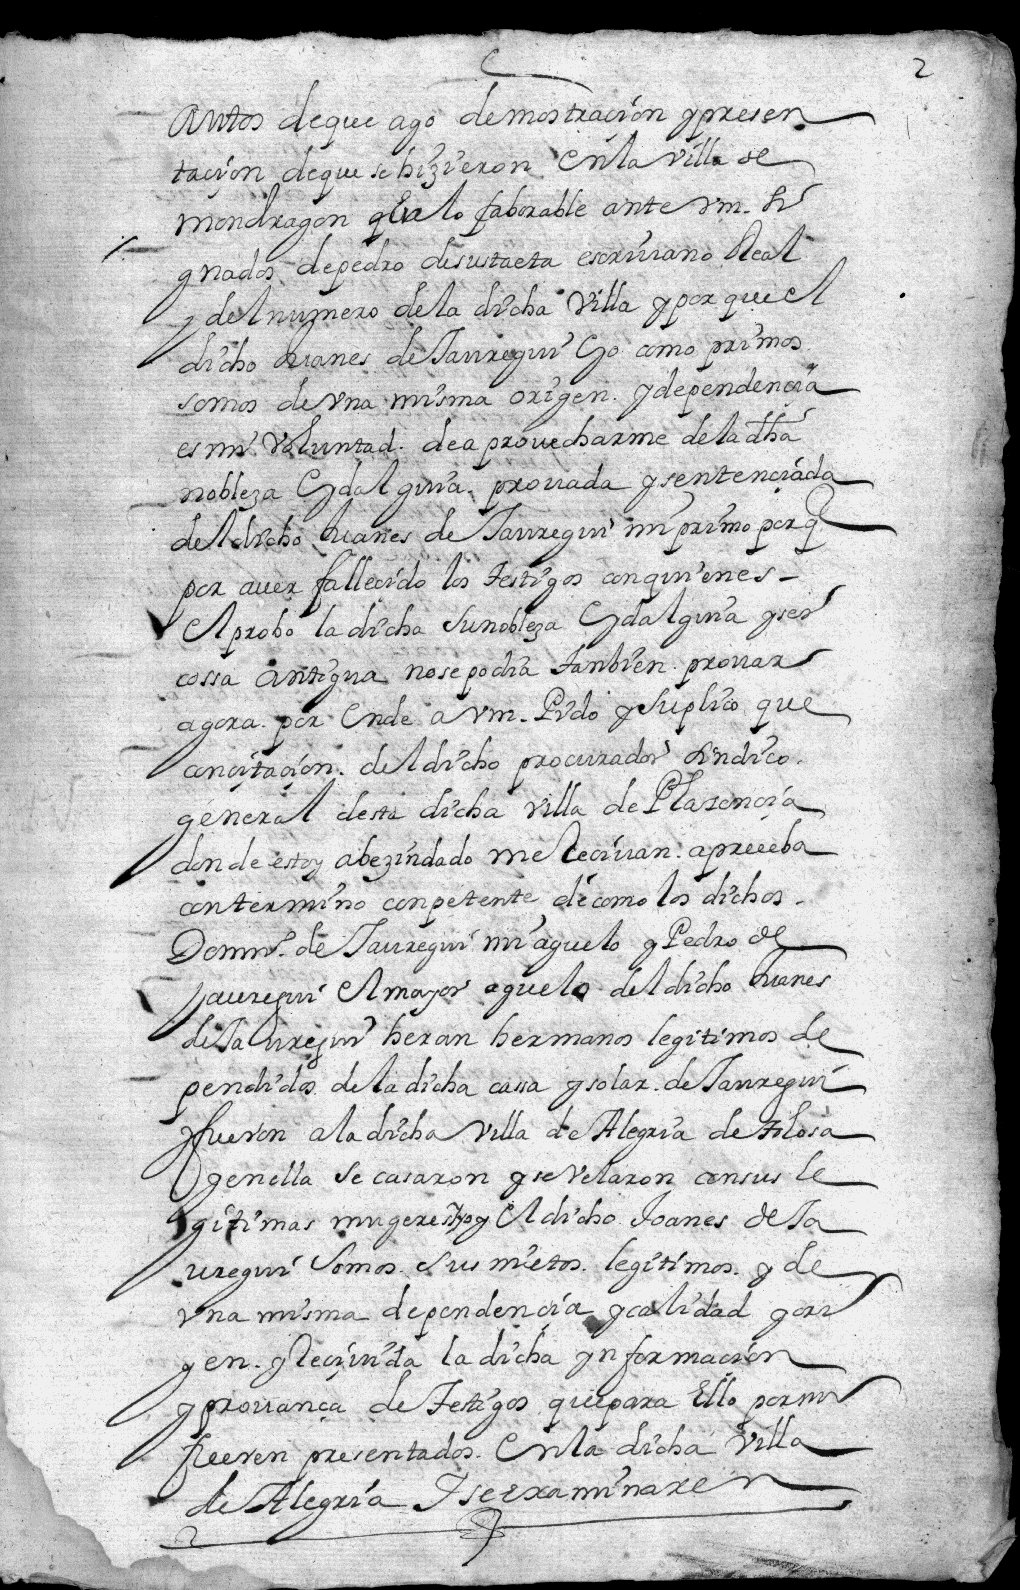 2
autos de que ago demostraçion y presen
taçion de que se hizieron en la villa de
mondragon en lo faborable ante vm. si
gnados de pedro de sustaeta escriuano Real
y del numero de la dicha villa y por que el
dicho Juanes de Jauregui y yo como primos
somos de vna misma origen. y dependençia
es mi voluntad. de aprouecharme de la dha
nobleza e ydalguia. prouada y sentençiada
del dicho Juanes de Jauregui mi primo por q
por auer falleçido los testigos con quienes
el probo la dicha su nobleza e ydalguia y ser
cossa antigua no se podria tanbien. prouar
agora. por ende a vm. Pido y suplico que
con çitaçion. del dicho procurador sindico.
general desta dicha villa de Plazençia
donde estoy abezindado me Reçiuan. a prueba
con termino conpetente de como los dichos.
Domin.º de Jauregui mi aguelo y Pedro de
Jauregui el mayor aguelo del dicho Juanes
de Jauregui heran hermanos legitimos de
pendidos de la dicha cassa y solar. de Jauregui
y fueron a la dicha villa de Alegria de
y en ella se casaron y se velaron con sus le
gitimas mugeres y yo y el dicho Joanes de Ja
uregui somos. sus nietos. legitimos. y de
vna misma dependençia y calidad y ori
gen. y Reçiuida la dicha ynformaçion
y prouança de testigos que para ello por mi
fueren presentados. en la dicha villa
de Alegria y se examinaren